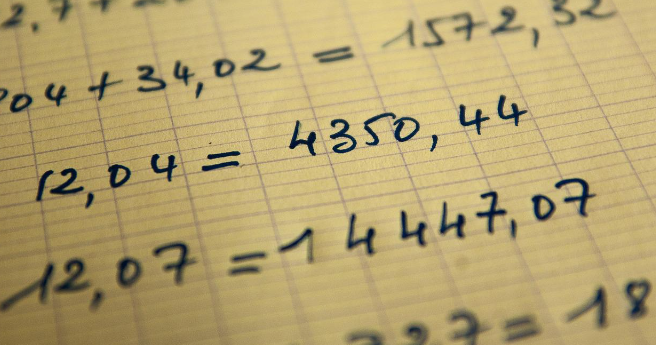 2,77
04 + 34,02 = 1572,32
12,04 = 4350,44
12,07 = 14447,07
727 = 18